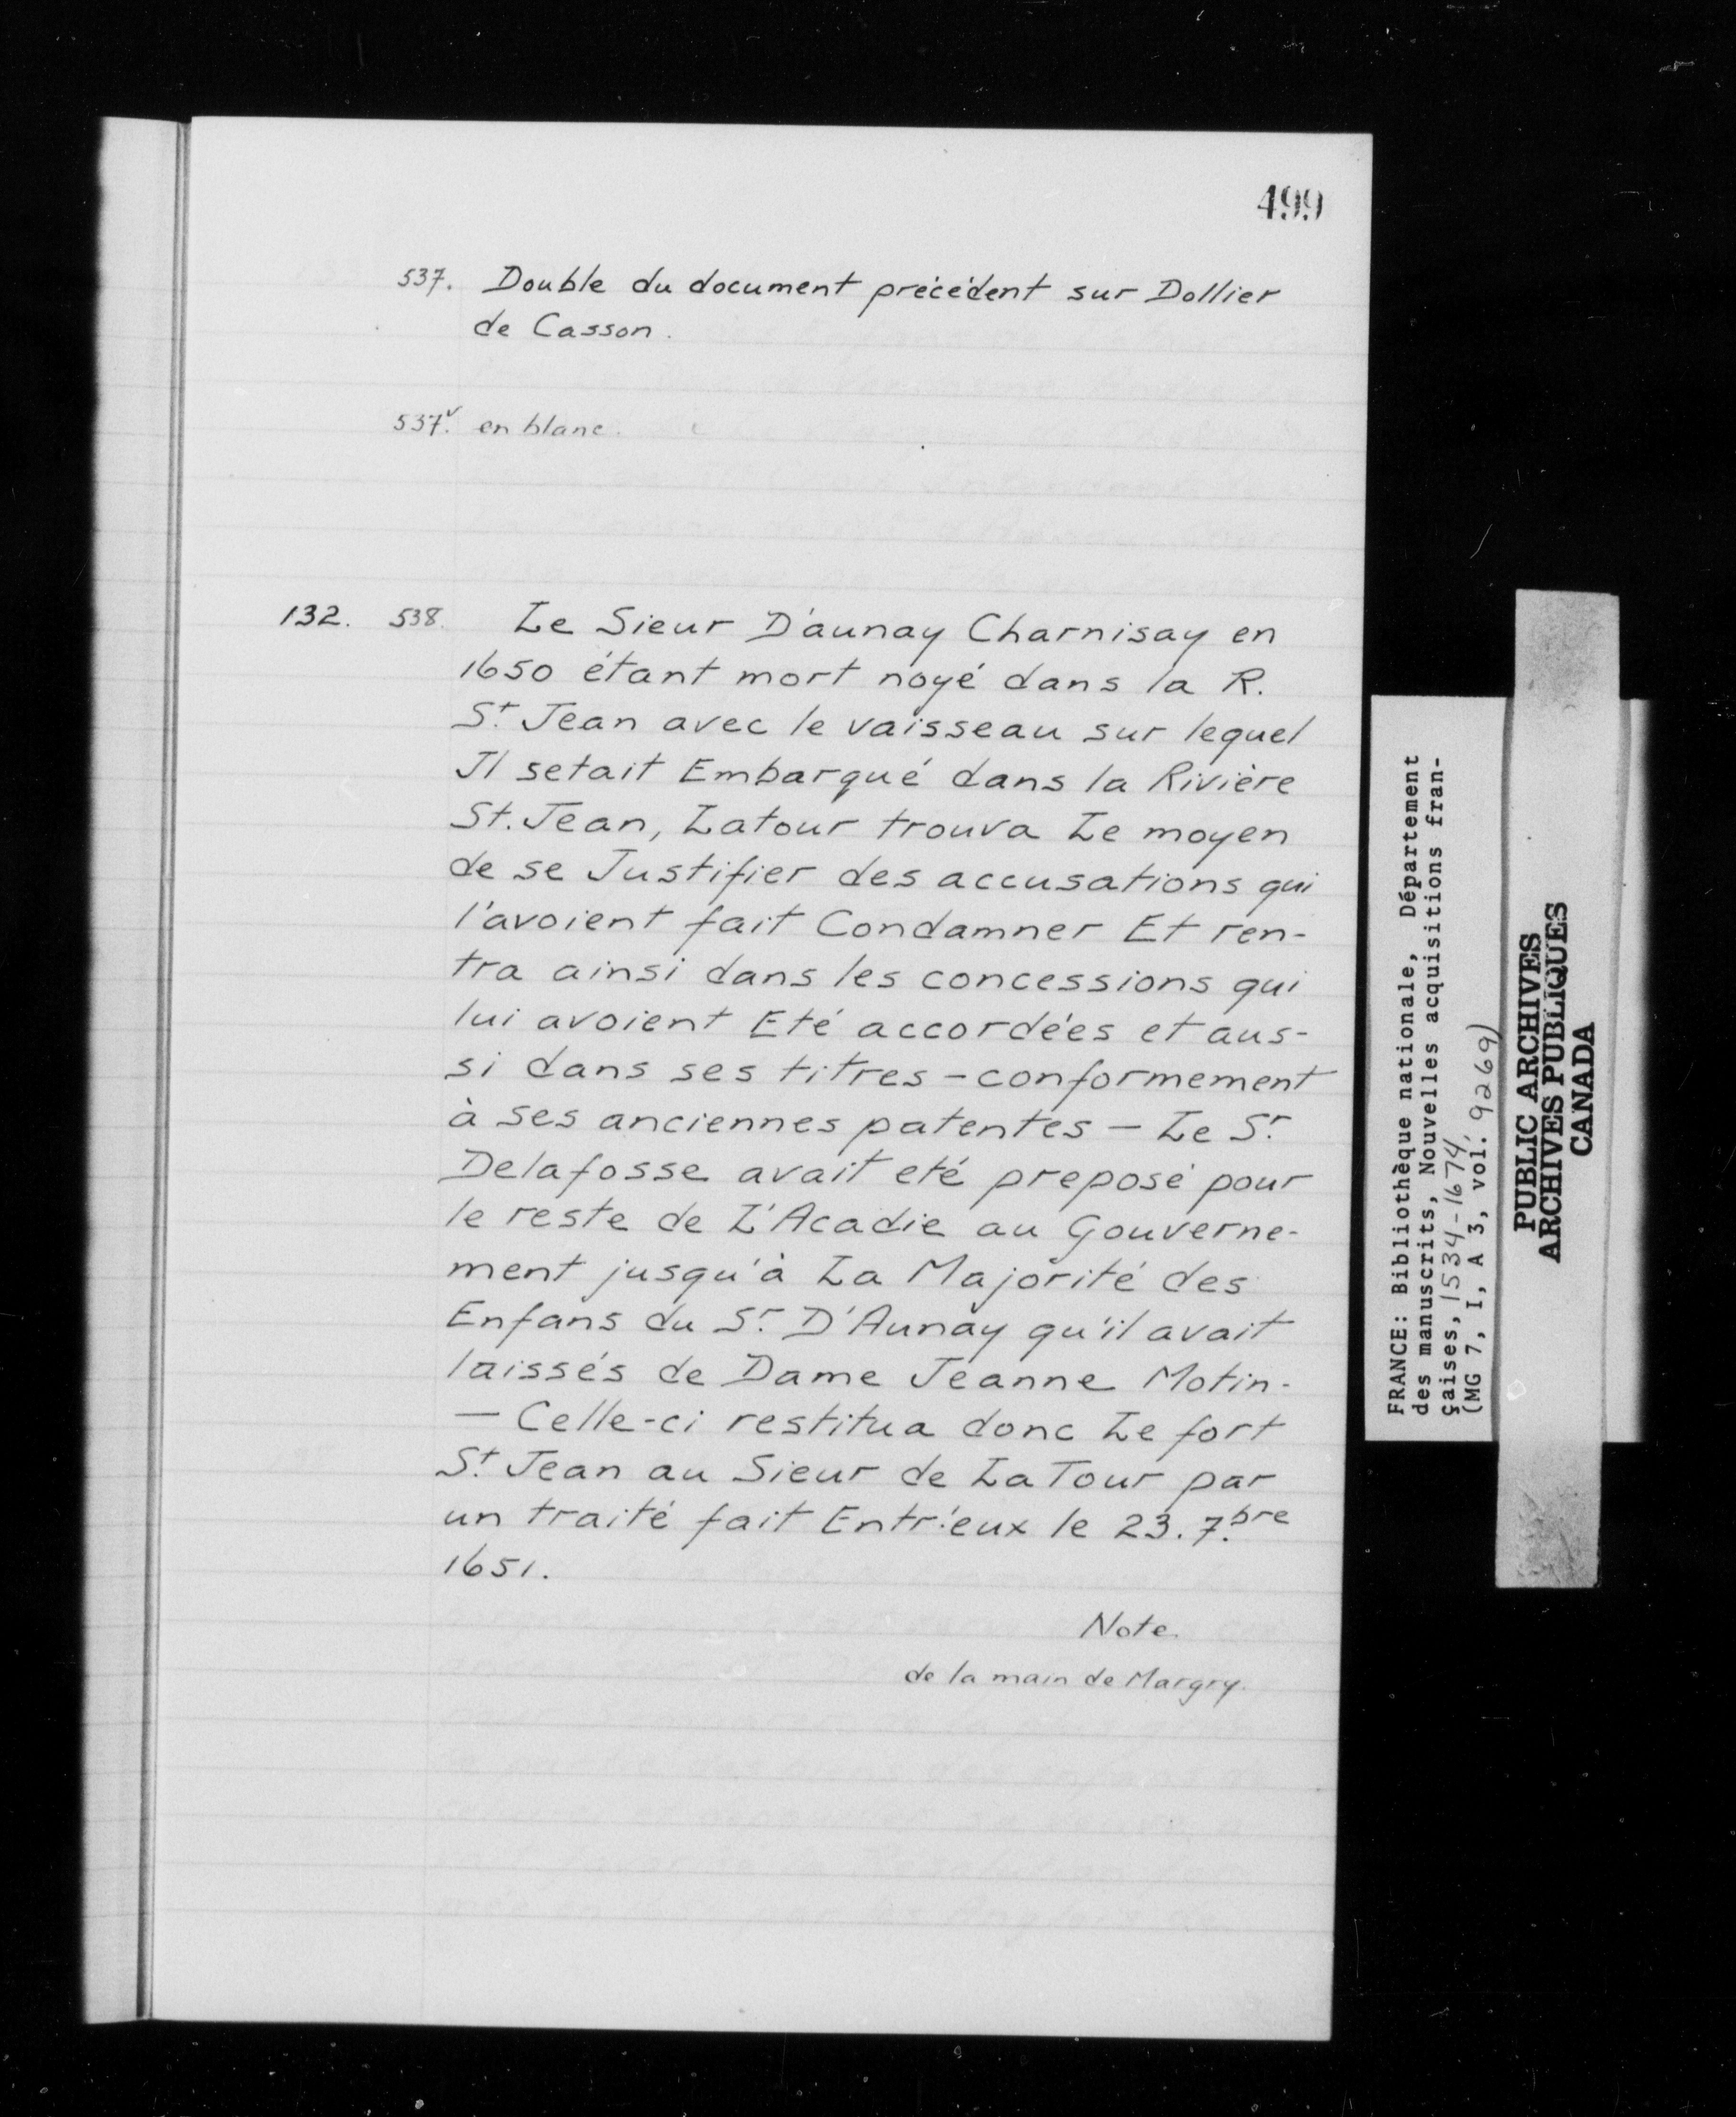 499
537. Double du document précédent sur Dollier
de Casson.
537v. en blanc.
132. 538. Le Sieur D'aunay Charnisay en
1650 étant mort noyé dans la R.
St. Jean avec le vaisseau sur lequel
Il setait Embarqué dans la Rivière
St. Jean, Latour trouva Le moyen
de se Justifier des accusations qui
l'avoient fait Condamner Et ren-
tra ainsi dans les concessions qui
lui avoient Eté accordées et aus-
si dans ses titres - conformement
à ses anciennes patentes — Le Sr.
Delafosse avait eté preposé pour
le reste de L'Acadie au Gouverne-
ment jusqu'à La Majorité des
Enfans du Sr. D'Aunay qu'il avait
laissés de Dame Jeanne Motin.
— Celle-ci restitua donc Le fort
St. Jean au Sieur de La Tour par
un traité fait Entr'eux le 23. 7.bre
1651.
Note.
de la main de Margry.
FRANCE: Bibliothèque nationale, Département
des manuscrits, Nouvelles acquisitions fran-
çaises, 1534-1674,
(MG 7, I, A 3, vol. 9269)
PUBLIC ARCHIVES
ARCHIVES PUBLIQUES
CANADA